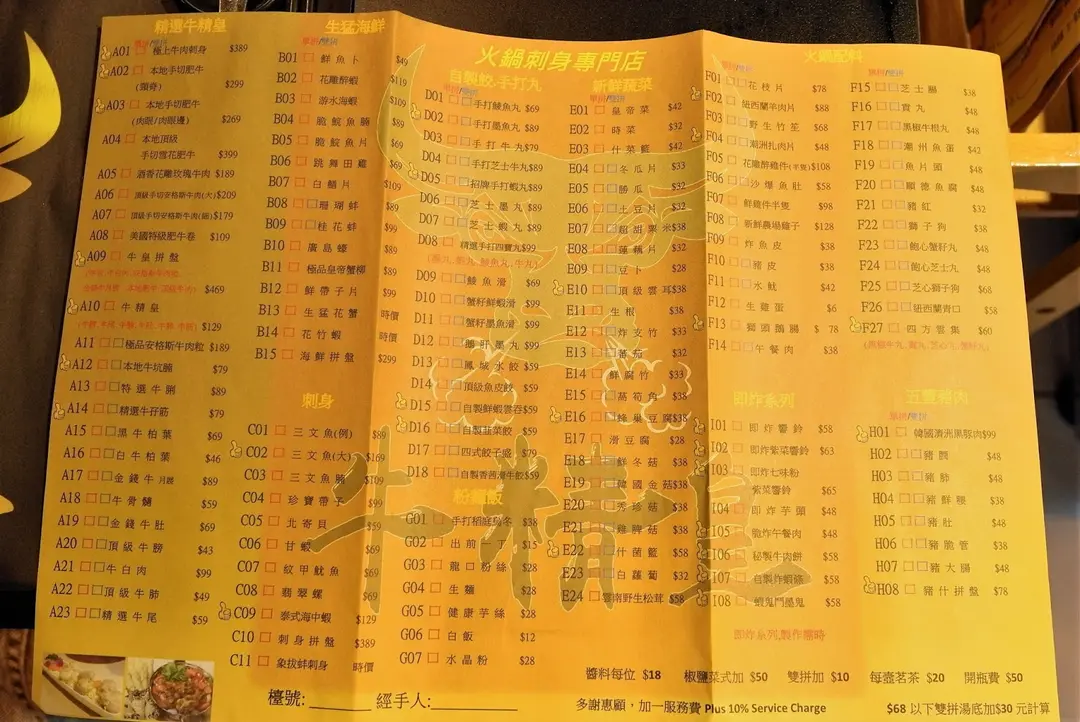 精選牛精皇
單拼/雙拼
A01 □ 極上牛肉刺身 $389
A02 □ 本地手切肥牛
(頸脊) $299
A03 □ 本地手切肥牛
(肉眼/肉眼邊) $269
A04 □ 本地頂級
手切雪花肥牛 $399
A05 □ 酒香花雕玫瑰牛肉 $189
A06 □ 頂級手切安格斯牛肉(大) $209
A07 □ 頂級手切安格斯牛肉(細) $179
A08 □ 美國特級肥牛卷 $109
A09 □ 牛皇拼盤
$469
A10 □ 牛精皇
$129
A11 □ 極品安格斯牛肉粒 $189
A12 □□ 本地牛坑腩 $79
A13 □ 特選牛脷 $89
A14 □□ 精選牛孖筋 $79
A15 □□ 黑牛柏葉 $69
A16 □□ 白牛柏葉 $46
A17 □□ 金錢牛月展 $89
A18 □ 牛骨髓 $59
A19 □□ 金錢牛肚 $69
A20 □□ 頂級牛膀 $43
A21 □□ 牛白肉 $99
A22 □□ 頂級牛肺 $49
A23 □□ 精選牛尾 $59
生猛海鮮
單拼/雙拼
B01 □ 鮮魚卜 $49
B02 □ 花雕醉蝦 $119
B03 □ 游水海蝦 $109
B04 □ 脆鯇魚腩 $69
B05 □ 脆鯇魚片 $69
B06 □ 跳舞田雞 $69
B07 □ 白鱔片 $109
B08 □□ 珊瑚蚌 $89
B09 □□ 桂花蚌 $99
B10 □ 廣島蠔 $89
B11 □ 極品皇帝蟹柳 $89
B12 □ 鮮帶子片 $99
B13 □ 生猛花蟹 時價
B14 □ 花竹蝦 時價
B15 □ 海鮮拼盤 $299
刺身
C01 □ 三文魚(例) $89
C02 □ 三文魚(大) $169
C03 □ 三文魚腩 $109
C04 □ 珍寶帶子 $99
C05 □ 北寄貝 $59
C06 □ 甘蝦 $69
C07 □ 紋甲魷魚 $69
C08 □ 翡翠螺 $69
C09 □ 泰式海中蝦 $129
C10 □ 刺身拼盤 $389
C11 □ 象拔蚌刺身 時價
火鍋刺身專門店
自製餃.手打丸
單拼/雙拼
D01 □□ 手打鯪魚丸 $69
D02 □□ 手打墨魚丸 $89
D03 □□ 手打牛丸 $79
D04 □□ 手打芝士牛丸 $89
D05 □□ 招牌手打蝦丸 $89
D06 □□ 芝士墨丸 $89
D07 □□ 芝士蝦丸 $89
D08 □ 精選手打四寶丸 $99
D09 □□ 鯪魚滑 $69
D10 □□ 蟹籽鮮蝦滑 $99
D11 □□ 蟹籽墨魚滑 $99
D12 □□ 鵝肝墨丸 $99
D13 □□ 鳳城水餃 $59
D14 □□ 頂級魚皮餃 $59
D15 □□ 自製鮮蝦雲吞 $59
D16 □□ 自製韭菜餃 $59
D17 □□ 四式餃子盛 $79
D18 □□ 自製香茜滑牛餃 $59
粉麵飯
G01 □ 手打稻庭烏冬 $38
G02 □ 出前一丁 $15
G03 □ 龍口粉絲 $28
G04 □ 生麵 $28
G05 □ 健康芋絲 $28
G06 □ 白飯 $12
G07 □ 水晶粉 $28
新鮮蔬菜
單拼/雙拼
E01 □ 皇帝菜 $42
E02 □ 時菜 $32
E03 □ 什菜籃 $42
E04 □□ 冬瓜片 $33
E05 □□ 勝瓜 $32
E06 □□ 土豆片 $32
E07 □□ 超甜粟米 $38
E08 □□ 蓮藕片 $32
E09 □ 豆卜 $28
E10 □□ 頂級雲耳 $38
E11 □ 生根 $38
E12 □□ 炸支竹 $33
E13 □□ 蕃茄 $32
E14 □□ 鮮腐竹 $33
E15 □ 萵筍角 $38
E16 □□ 蜂巢豆腐 $38
E17 □ 滑豆腐 $28
E18 □□ 鮮冬菇 $38
E19 □□ 韓國金菇 $38
E20 □□ 秀珍菇 $38
E21 □□ 雞脾菇 $38
E22 □□ 什菌籃 $58
E23 □□ 白蘿蔔 $32
E24 □□ 雲南野生松茸 $58
火鍋配料
單拼/雙拼
F01 □□ 花枝片 $78
F02 □□ 紐西蘭羊肉片 $88
F03 □□ 野生竹笙 $68
F04 □□ 潮洲扎肉片 $48
F05 □ 花雕醉雞件(半隻) $108
F06 □□ 沙爆魚肚 $58
F07 □ 鮮雞件半隻 $98
F08 □ 新鮮農場雞子 $128
F09 □ 炸魚皮 $38
F10 □ 豬皮 $38
F11 □ 水魷 $42
F12 □ 生雞蛋 $6
F13 □ 獅頭鵝腸 $78
F14 □□ 午餐肉 $38
單拼/雙拼
F15 □□ 芝士腸 $38
F16 □□ 貢丸 $48
F17 □□ 黑椒牛根丸 $48
F18 □□ 潮州魚蛋 $42
F19 □□ 魚片頭 $48
F20 □□ 順德魚腐 $48
F21 □□ 豬紅 $32
F22 □□ 獅子狗 $38
F23 □□ 飽心蟹籽丸 $48
F24 □□ 飽心芝士丸 $48
F25 □□ 芝心獅子狗 $68
F26 □□ 紐西蘭青口 $58
F27 □ 四方雲集 $60
即炸系列
I01 □ 即炸響鈴 $58
I02 □ 即炸紫菜響鈴 $63
I03 □ 即炸七味粉
紫菜響鈴 $65
I04 □ 即炸芋頭 $48
I05 □ 脆炸午餐肉 $48
I06 □ 秘製牛肉餅 $58
I07 □ 自製炸蝦條 $58
I08 □ 蝦鬼鬥墨鬼 $58
即炸系列,製作需時
五豐豬肉
單拼/雙拼
H01 □□ 韓國濟洲黑豚肉 $99
H02 □□ 豬膶 $48
H03 □□ 豬肺 $38
H04 □□ 豬鮮腰 $38
H05 □□ 豬肚 $48
H06 □□ 豬脆管 $38
H07 □□ 豬大腸 $48
H08 □□ 豬什拼盤 $78
牛精皇
檯號:______ 經手人:________
醬料每位 $18 椒鹽菜式加 $50 雙拼加 $10 每壺茗茶 $20 開瓶費 $50
多謝惠顧，加一服務費 Plus 10% Service Charge $68 以下雙拼湯底加$30 元計算